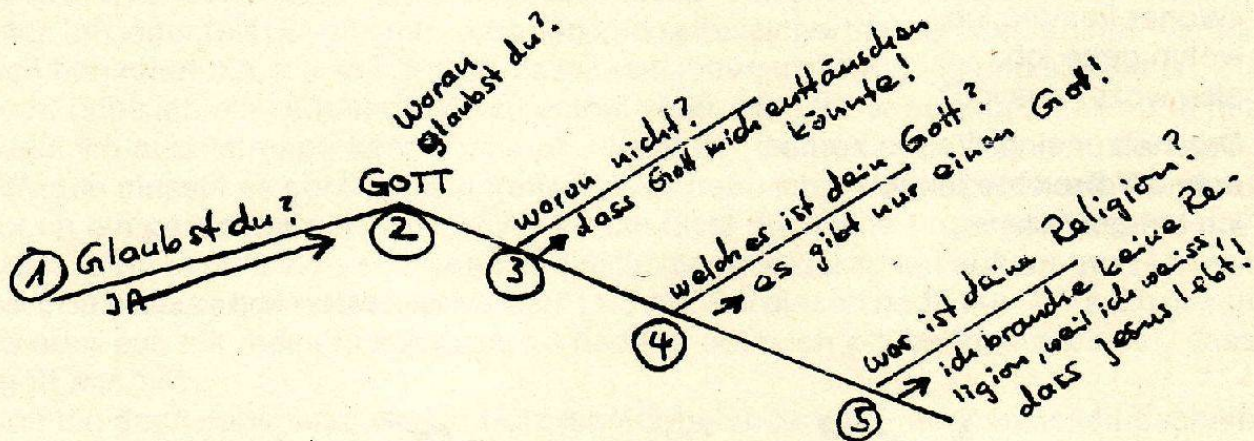 ① Glaubst du?
JA
Woran
glaubst du?
GOTT
②
③ woran nicht?
dass Gott mich enttäuschen
könnte!
④ welches ist dein Gott?
es gibt nur einen Gott!
⑤ was ist deine Religion?
ich brauche keine Re-
ligion, weil ich weiss,
dass Jesus lebt!